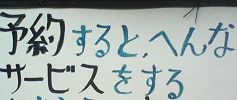 予約すると、へんな
サービスをする